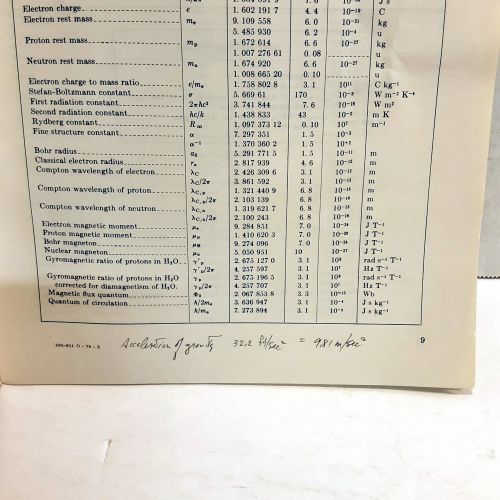 Electron charge e 1. 602 191 7 4. 4 10⁻¹⁹ C
Electron rest mass mₑ 9. 109 558 6. 0 10⁻³¹ kg
5. 485 930 6. 2 10⁻⁴ u
Proton rest mass mₚ 1. 672 614 6. 6 10⁻²⁷ kg
1. 007 276 61 0. 08 u
Neutron rest mass mₙ 1. 674 920 6. 6 10⁻²⁷ kg
1. 008 665 20 0. 10 u
Electron charge to mass ratio e/mₑ 1. 758 802 8 3. 1 10¹¹ C kg⁻¹
Stefan-Boltzmann constant σ 5. 669 61 170 10⁻⁸ W m⁻² K⁻⁴
First radiation constant 2πhc² 3. 741 844 7. 6 10⁻¹⁶ W m²
Second radiation constant hc/k 1. 438 833 43 10⁻² m K
Rydberg constant R∞ 1. 097 373 12 0. 10 10⁷ m⁻¹
Fine structure constant α 7. 297 351 1. 5 10⁻³
α⁻¹ 1. 370 360 2 1. 5 10⁺²
Bohr radius a₀ 5. 291 771 5 1. 5 10⁻¹¹ m
Classical electron radius rₑ 2. 817 939 4. 6 10⁻¹⁵ m
Compton wavelength of electron λC 2. 426 309 6 3. 1 10⁻¹² m
λC/2π 3. 861 592 3. 1 10⁻¹³ m
Compton wavelength of proton λC,p 1. 321 440 9 6. 8 10⁻¹⁵ m
λC,p/2π 2. 103 139 6. 8 10⁻¹⁶ m
Compton wavelength of neutron λC,n 1. 319 621 7 6. 8 10⁻¹⁵ m
λC,n/2π 2. 100 243 6. 8 10⁻¹⁶ m
Electron magnetic moment μₑ 9. 284 851 7. 0 10⁻²⁴ J T⁻¹
Proton magnetic moment μₚ 1. 410 620 3 7. 0 10⁻²⁶ J T⁻¹
Bohr magneton μB 9. 274 096 7. 0 10⁻²⁴ J T⁻¹
Nuclear magneton μₙ 5. 050 951 10 10⁻²⁷ J T⁻¹
Gyromagnetic ratio of protons in H₂O γ′ₚ 2. 675 127 0 3. 1 10⁸ rad s⁻¹ T⁻¹
γ′ₚ/2π 4. 257 597 3. 1 10⁷ Hz T⁻¹
Gyromagnetic ratio of protons in H₂O γₚ 2. 675 196 5 3. 1 10⁸ rad s⁻¹ T⁻¹
corrected for diamagnetism of H₂O. γₚ/2π 4. 257 707 3. 1 10⁷ Hz T⁻¹
Magnetic flux quantum Φ₀ 2. 067 853 8 3. 3 10⁻¹⁵ Wb
Quantum of circulation h/2mₑ 3. 636 947 3. 1 10⁻⁴ J s kg⁻¹
h/mₑ 7. 273 894 3. 1 10⁻⁴ J s kg⁻¹
Acceleration of gravity 32.2 ft/sec² = 9.81 m/sec² 9